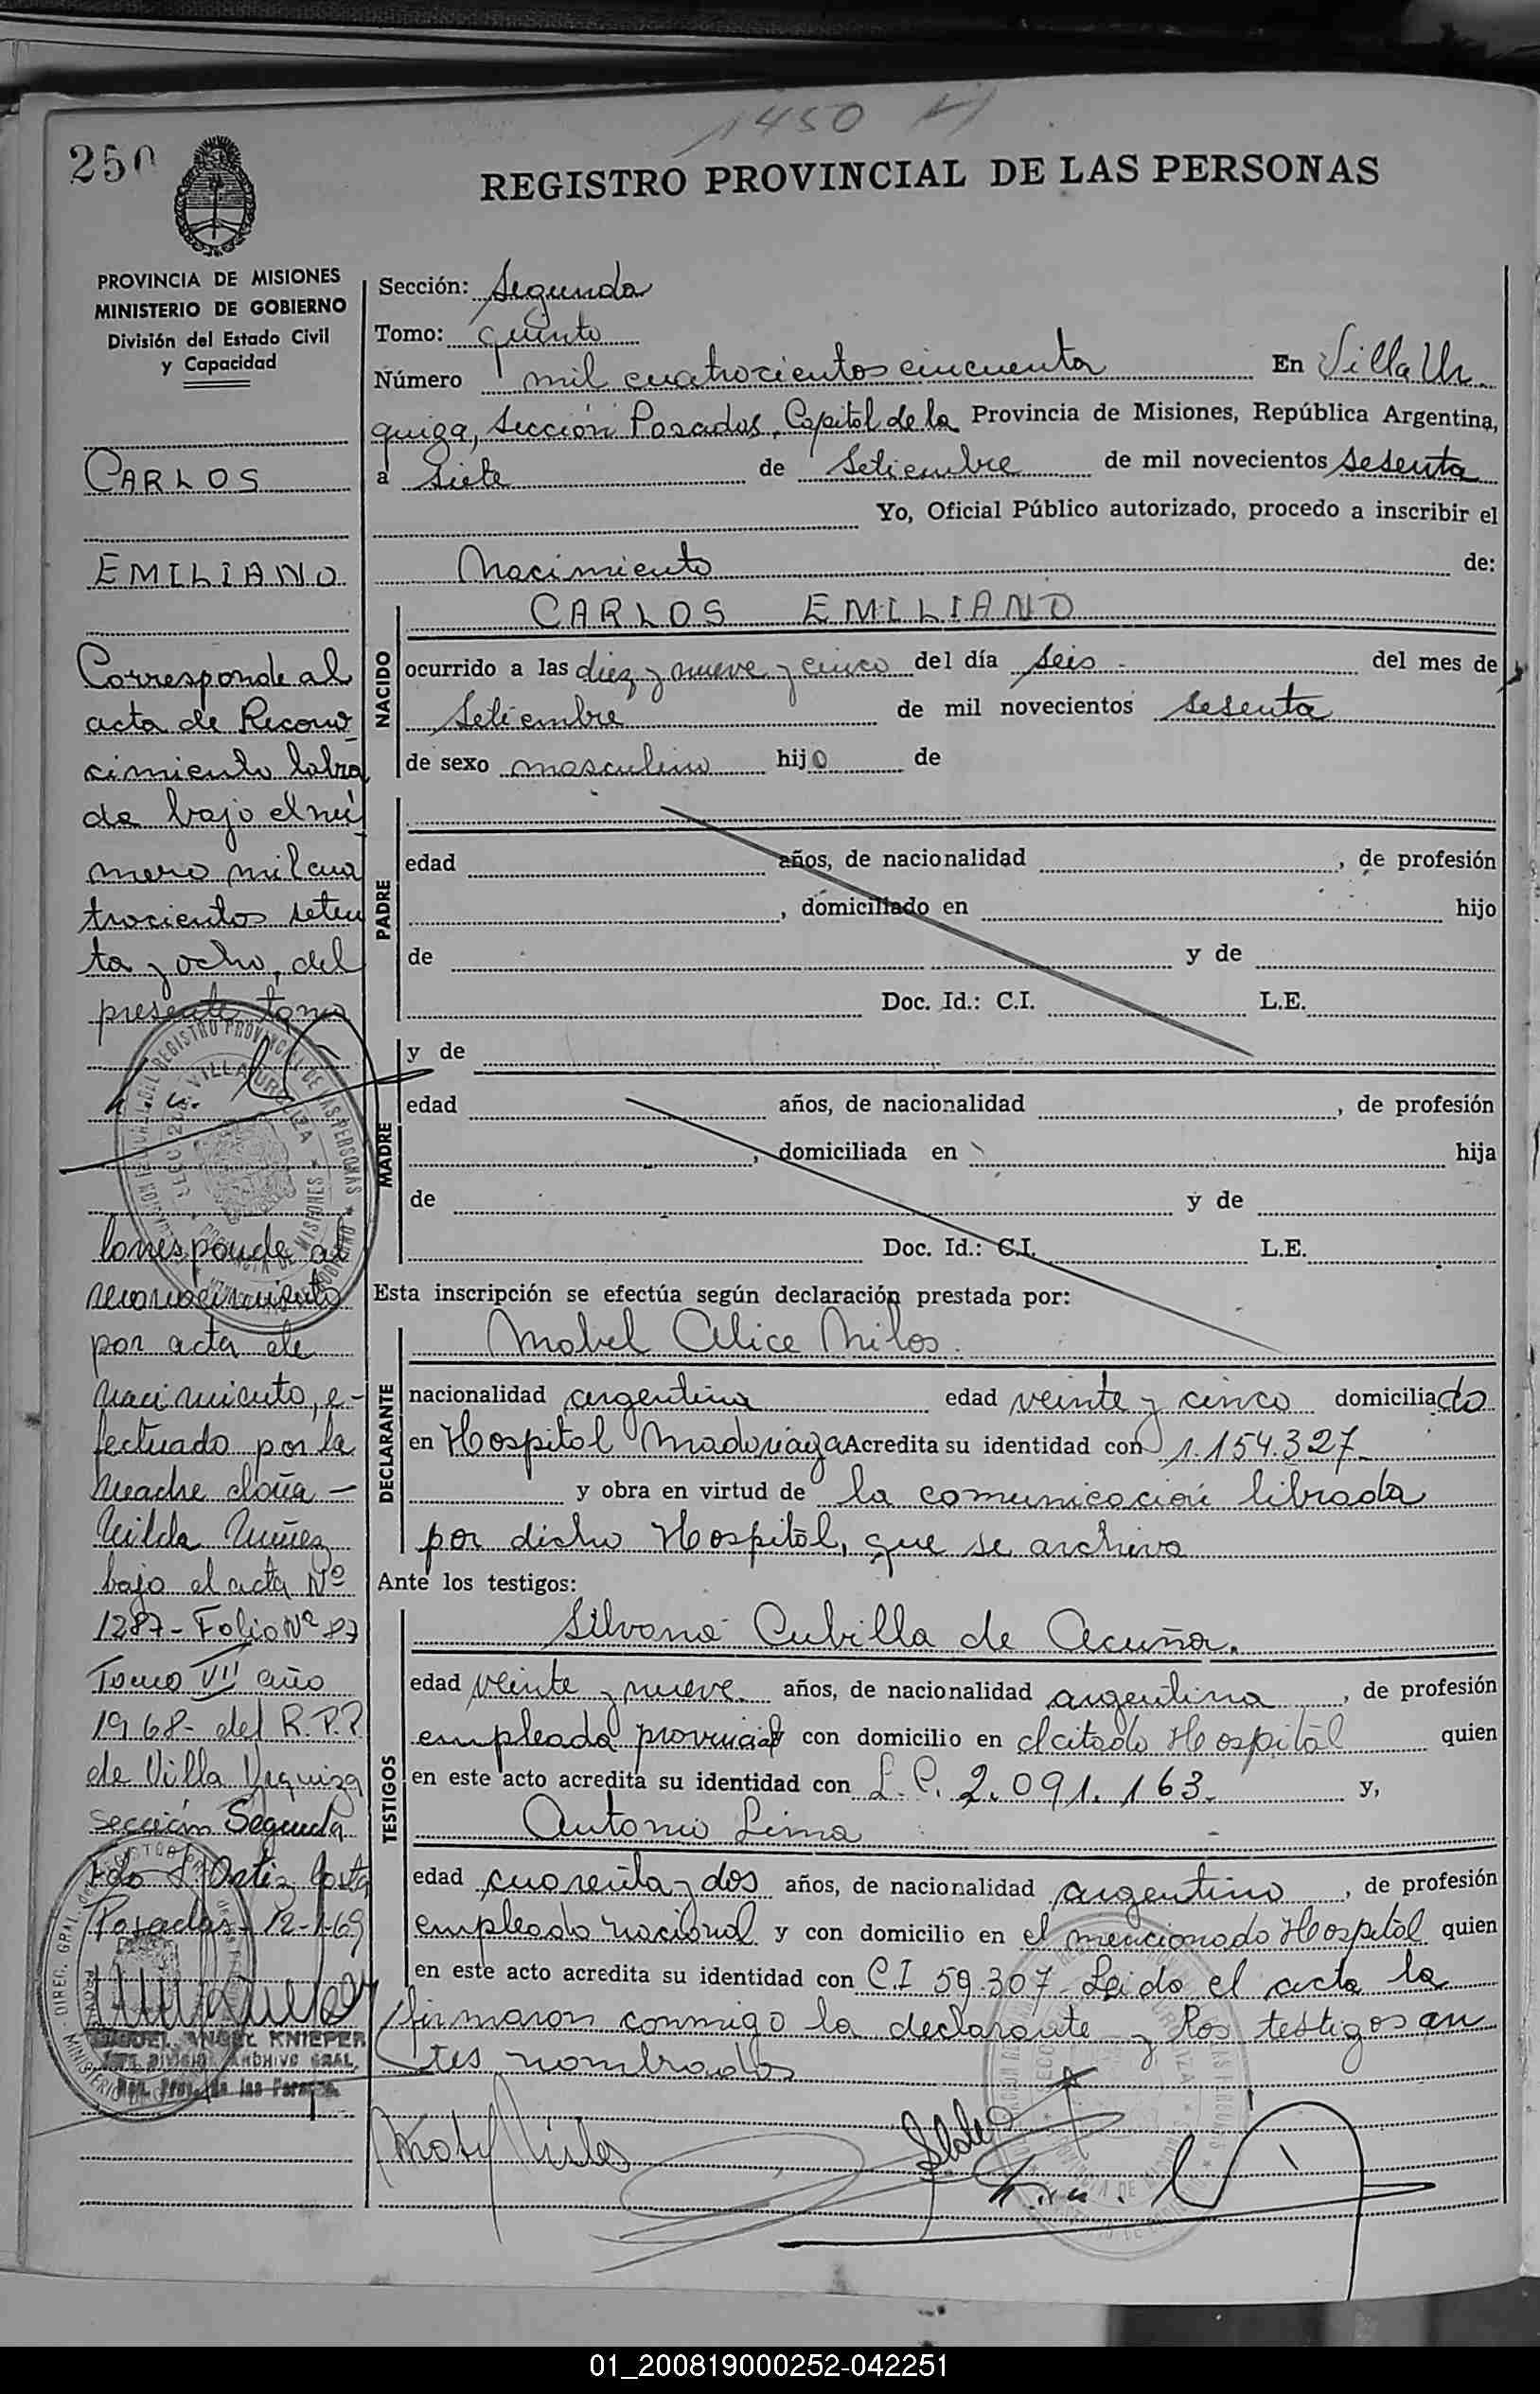 1450
250
REGISTRO PROVINCIAL DE LAS PERSONAS
PROVINCIA DE MISIONES
MINISTERIO DE GOBIERNO
División del Estado Civil
y Capacidad
CARLOS
EMILIANO
Corresponde al
acta de Recono
cimiento labra
da bajo el nú
mero mil cua
trocientos seten
ta y ocho, del
presente tomo
Corresponde al
reconocimiento
por acta de
nacimiento, e-
fectuado por la
madre doña -
Nilda Nuñez
bajo el acta Nº
1287 - Folio Nº 87
Tomo VII año
1968 - del R.P.P.
de Villa Urquiza
sección Segunda
Fdo Ortiz
Posadas - 12-1-69
MIGUEL ANGEL KNIEPER
JEFE DIVISION ARCHIVO GRAL.
Reg. Prov. de las Personas
Sección: Segunda
Tomo: quinto
Número mil cuatrocientos cincuenta En Villa Ur
quiza, Sección Posadas, Capital de la Provincia de Misiones, República Argentina,
a siete de Setiembre de mil novecientos sesenta
Yo, Oficial Público autorizado, procedo a inscribir el
Nacimiento de:
NACIDO
CARLOS EMILIANO
ocurrido a las diez y nueve y cinco del día seis - del mes de
Setiembre de mil novecientos sesenta
de sexo masculino hijo de
PADRE
edad años, de nacionalidad , de profesión
, domiciliado en hijo
de y de
Doc. Id.: C.I. L.E.
MADRE
y de
edad años, de nacionalidad , de profesión
, domiciliada en hija
de y de
Doc. Id.: C.I. L.E.
Esta inscripción se efectúa según declaración prestada por:
DECLARANTE
Mabel Alice Milos
nacionalidad argentina edad veinte y cinco domiciliado
en Hospital Madariaga Acredita su identidad con 1.154.327
y obra en virtud de la comunicación librada
por dicho Hospital, que se archiva
Ante los testigos:
TESTIGOS
Silvana Cubilla de Acuña.
edad veinte y nueve años, de nacionalidad argentina , de profesión
empleada provincial con domicilio en el citado Hospital quien
en este acto acredita su identidad con L.C. 2.091.163. y,
Antonio Lima
edad cuarenta y dos años, de nacionalidad argentino , de profesión
empleado nacional y con domicilio en el mencionado Hospital quien
en este acto acredita su identidad con C.I 59.307 - Leido el acta la
firmaron conmigo la declarante y los testigos an
tes nombrados
01_200819000252-042251